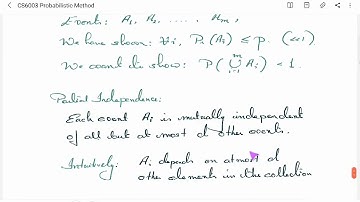 CS6003 Probabilistic Method
Events: A₁, A₂, ...., Aₘ,
We have shown: ∀i, Pr(Aᵢ) ≤ p. (<<1)
We want to show: P(⋃ᵢ₌₁ᵐ Aᵢ) < 1.
Partial Independence:
Each event Aᵢ is mutually independent
of all but at most d other events.
Intuitively: Aᵢ depends on atmost d
other elements in the collection